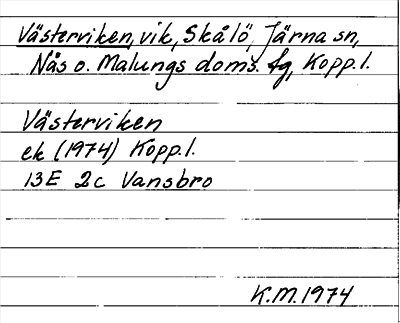 Västerviken, vik, Skålö, Järna sn,
Nås o. Malungs doms. fg, Kopp.l.
Västerviken
ek (1974) Kopp.l.
13E 2c Vansbro
K.M. 1974